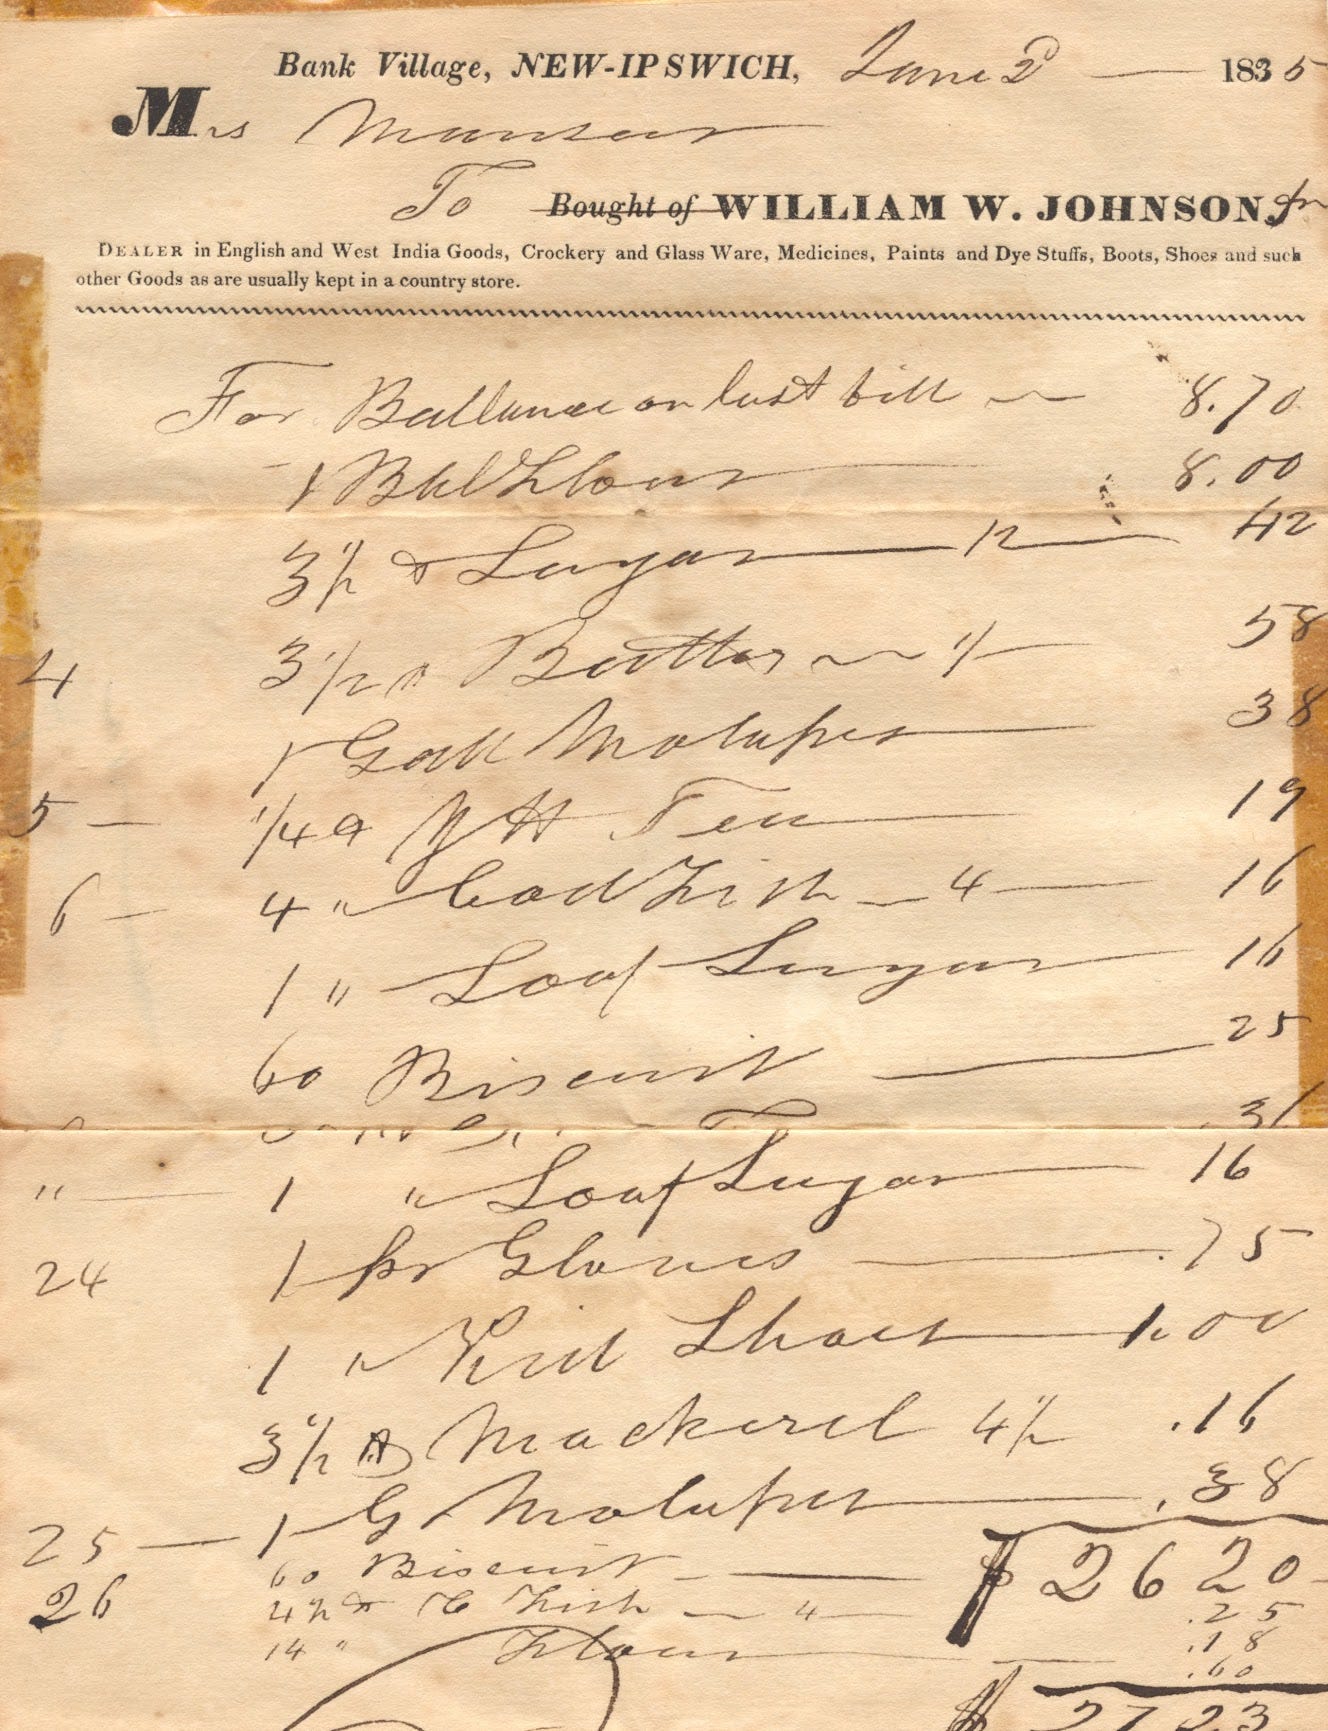 Bank Village, NEW-IPSWICH, June 2 — 1835
Mrs Munsar
To Bought of WILLIAM W. JOHNSON, Jr
DEALER in English and West India Goods, Crockery and Glass Ware, Medicines, Paints and Dye Stuffs, Boots, Shoes and such
other Goods as are usually kept in a country store.
For Ballance on last bill 8.70
1 Bbl Flour 8.00
3 1/2 Sugar 12 42
4 3 1/2 Butter 1/ 58
1 Gall Molasses 38
5 — 1/4 Y H Tea 19
6 — 4 " Cod Fish 4 16
1 " Loaf Sugar 16
60 Biscuit 25
31
" 1 " Loaf Sugar 16
24 1 pr Gloves .75
1 " Kid Shoes 1.00
3 1/2 Mackerel 4 1/2 .16
25 — 1 G Molasses .38
$ 26 20
26 60 Biscuit .25
4 1/2 C Fish 4 .18
14 " Flour .60
$ 27 23